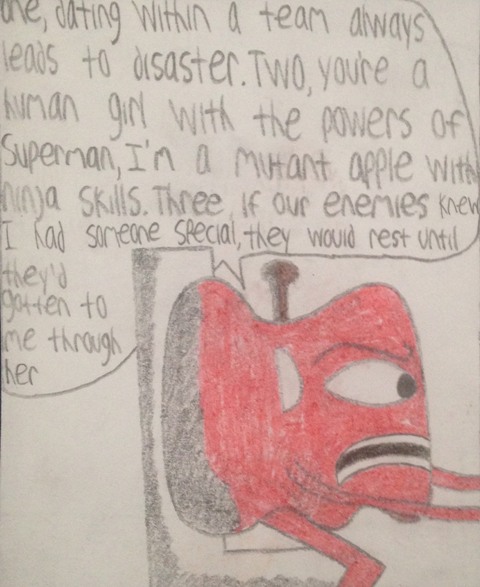 One, dating within a team always
leads to disaster. Two, you're a
human girl with the powers of
Superman, I'm a mutant apple with
ninja skills. Three if our enemies knew
I had someone special, they would rest until
they'd
gotten to
me through
her